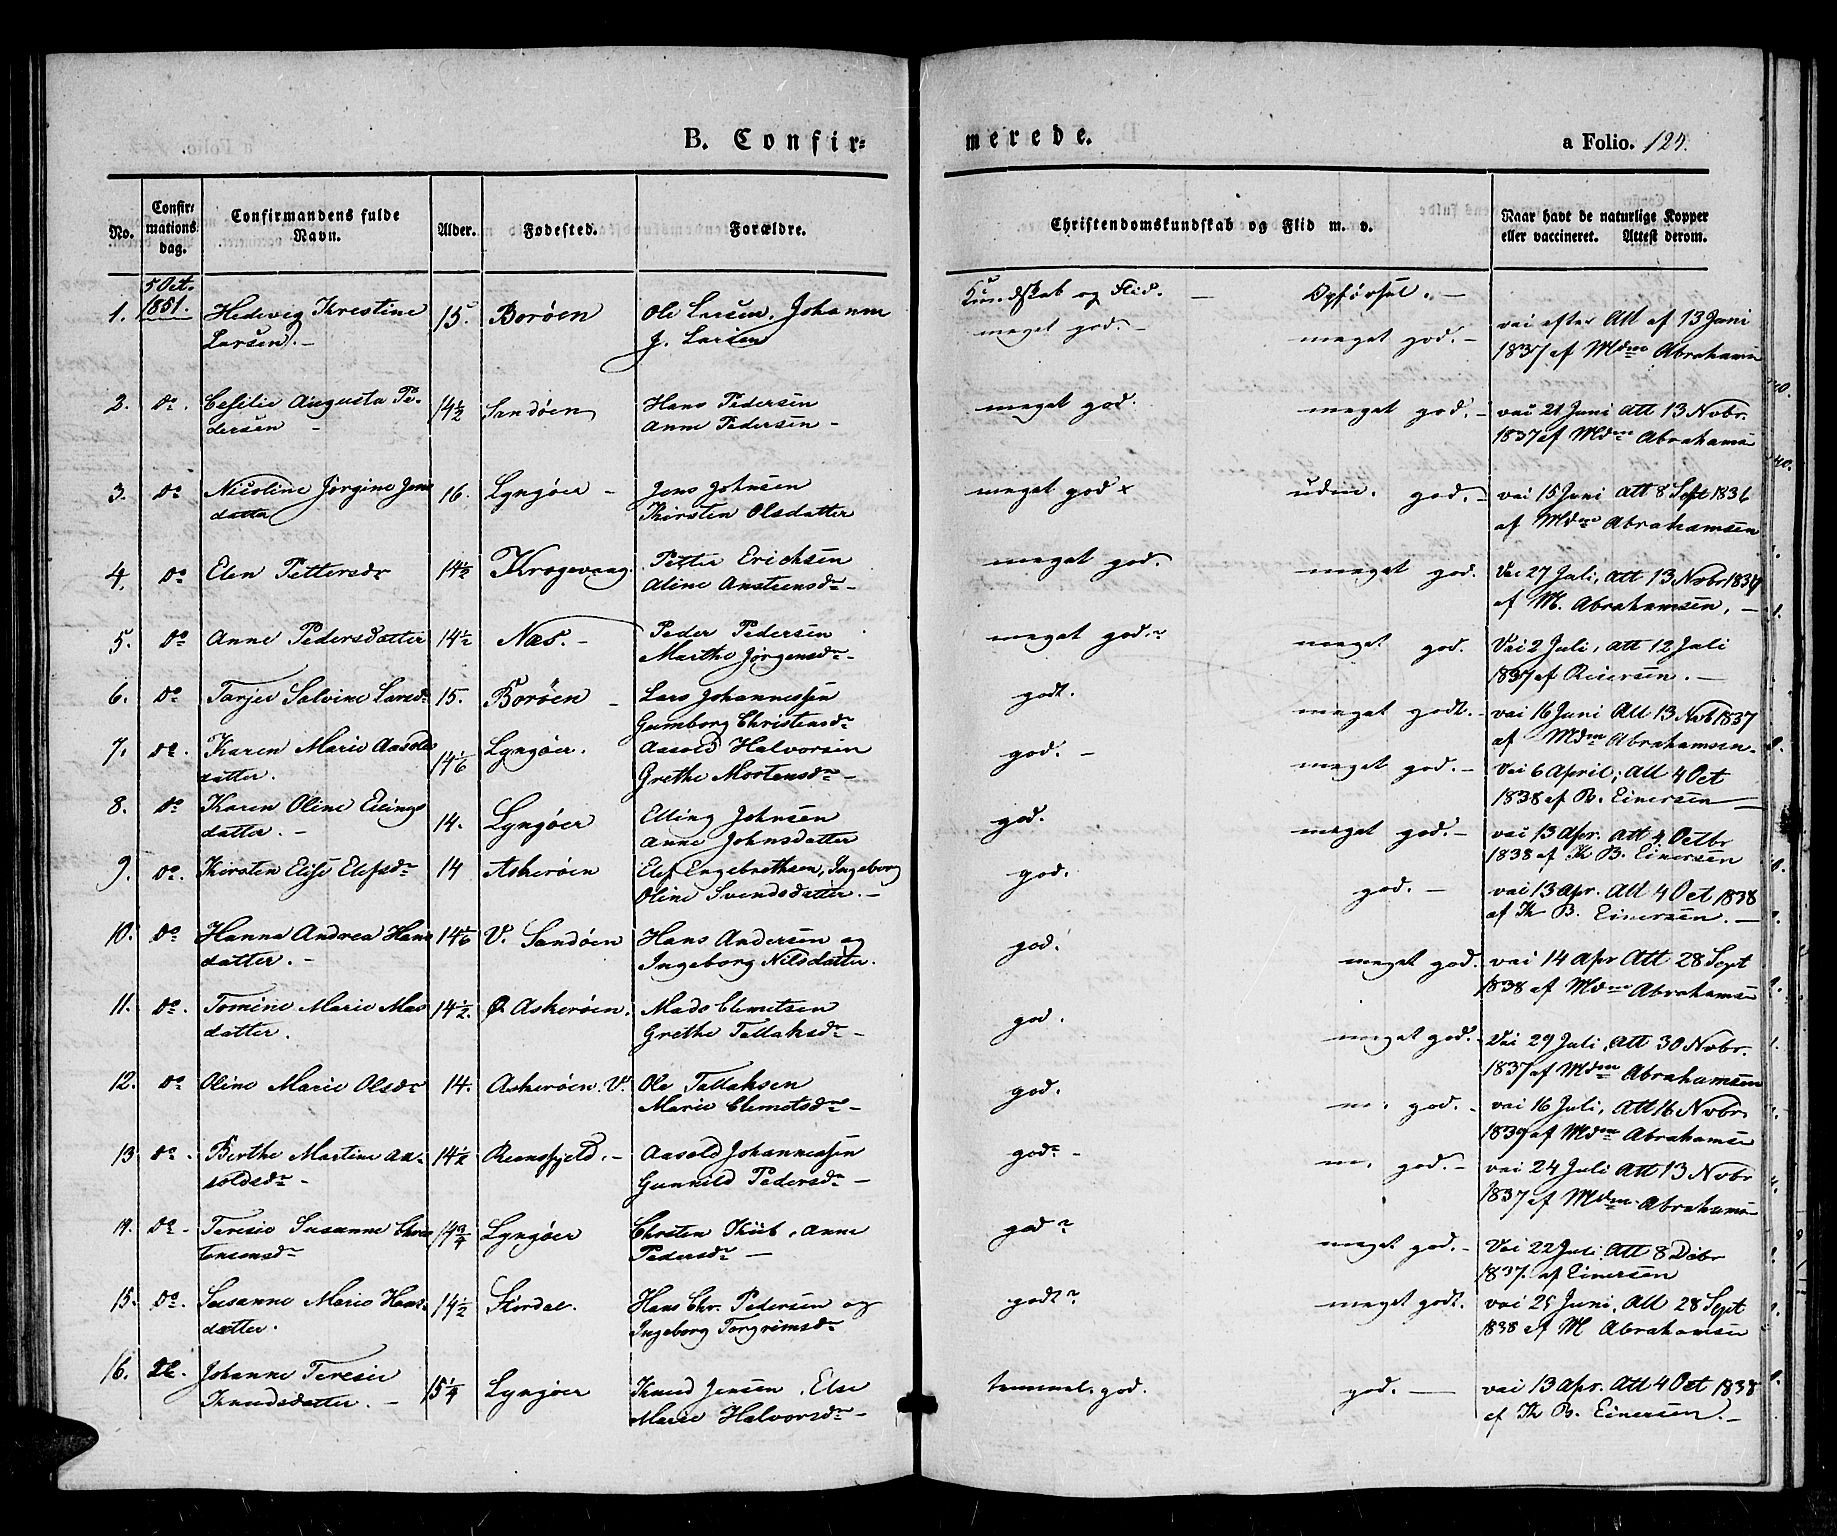 B. Confir=
merede.
a Folio. 125.
No.
Confir=
mations
dag.
Confirmandens fulde
Navn.
Alder.
Fødested.
Forældre.
Christendomskundskab og Flid m. v.
Naar havt de naturlige Kopper
eller vaccineret. Attest derom.
5 Oct.
1851.
Kundskab og Flid. — Opførsel. —
1. Hedevig Kirestine 15. Borøen Ole Larsen, Johanne meget god. — meget god. — vai efter Att af 13 Juni
Larsen. — J. Larsen 1837 af Mdm Abrahamsen
2. Do. Cesilie Augusta Pe- 14½ Sandøen Hans Pedersen meget god. meget god. — vai 21 Juni Att 13 Novbr.
dersen — Anne Pedersen — 1837 af Mdm Abrahams
3. Do Nicoline Jørgine Jens 16. Lyngøer — Jens Johnsen meget god x udm. god. — vai 15 Juni Att 8 Sept 1836
datter Kirsten Olsdatter af Mdm Abrahamsen
4. Do Elen Pettersdr 14½ Krogevaag Petter Erichsen meget god. meget god. Vai 27 Juli, Att 13 Novbr 1837
Aline Anstensdr — af M. Abrahamsen. —
5. Do Anne Pedersdatter 14½ Næs. — Peder Pedersen meget god. meget god. Vai 2 Juli, Att 12 Juli
Marthe Jørgensdr — 1837 af Reiersen. —
6. Do Tarjer Salvine Larsd. 15. Borøen — Lars Johannessen godt. meget godt. — vai 16 Juni Att 13 Nov 1837
Gumborg Christensdr af Mdm Abrahamsen.
7. Do. Karen Marie Aasolds 14⅙ Lyngøer. Aasold Halvorsen god. — meget god. — Vai 6 April, Att 4 Oct
datter. Grethe Mortensdr — 1838 af B. Einersen —
8. Do Karen Oline Ellings 14. Lyngøer Elling Johnsen god. meget god. — vai 13 Apr. Att 4 Octbr
datter. — Anne Johnsdatter 1838 af Th B. Einersen
9. Do. Kirsten Elise Elefsdr 14 Askerøen Elef Engebrethsen, Ingeborg god. god. — vai 13 Apr. Att 4 Oct 1838
Oline Svendsdatter. — af Th B. Einersen. —
10. Do Hanna Andrea Hans 14⅙ V. Sandøen Hans Andersen og god. meget god. vai 14 Apr Att 28 Sept
datter. — Ingeborg Nilsdatter. 1838 af Mdm Abrahamsen
11. Do. Tomine Marie Mas 14½. Ø. Askerøen. Mads Clemetsen god. meget god. Vai 29 Juli, Att 30 Novbr.
datter. Grethe Tellaksdr — 1837 af Mdm Abrahamsen
12. Do Oline Marie Olsdr 14. Askerøen. V. Ole Tallaksen god. m. god. — vai 16 Juli, Att 16 Novbr
Marie Clemetsdr — af Mdm Abrahamse
13 Do. Berthe Martine Aa- 14½ Reensfjeld. — Aasold Johannessen god. — m. god. — vai 24 Juli Att 13 Novbr
soldsdr — Gunnild Pedersdr — 1837 af Mdm Abrahams
14. Do — Teresie Susanne 14¾ Lyngøer Anne god meget god. — Vai 22 Juli Att 8 Debr
tensensdr Pedersdr — 1837. af Einersen
15. Do. Susanne Marie Hans- 14½ Hans Chr. Pedersen og godt meget godt. vai 25 Juni, Att 28 Sept
datter. Ingeborg Torgrimsdr 1838 af M Abrahamsen
16. Johanne Teresie 15¼ Lyngøer Knud Jensen, Else temmel. god. god. — vai 13 Apr. Att 4 Oct 1838
Knudsdatter. — Marie Halvorsdr — af Th B. Einersen. —